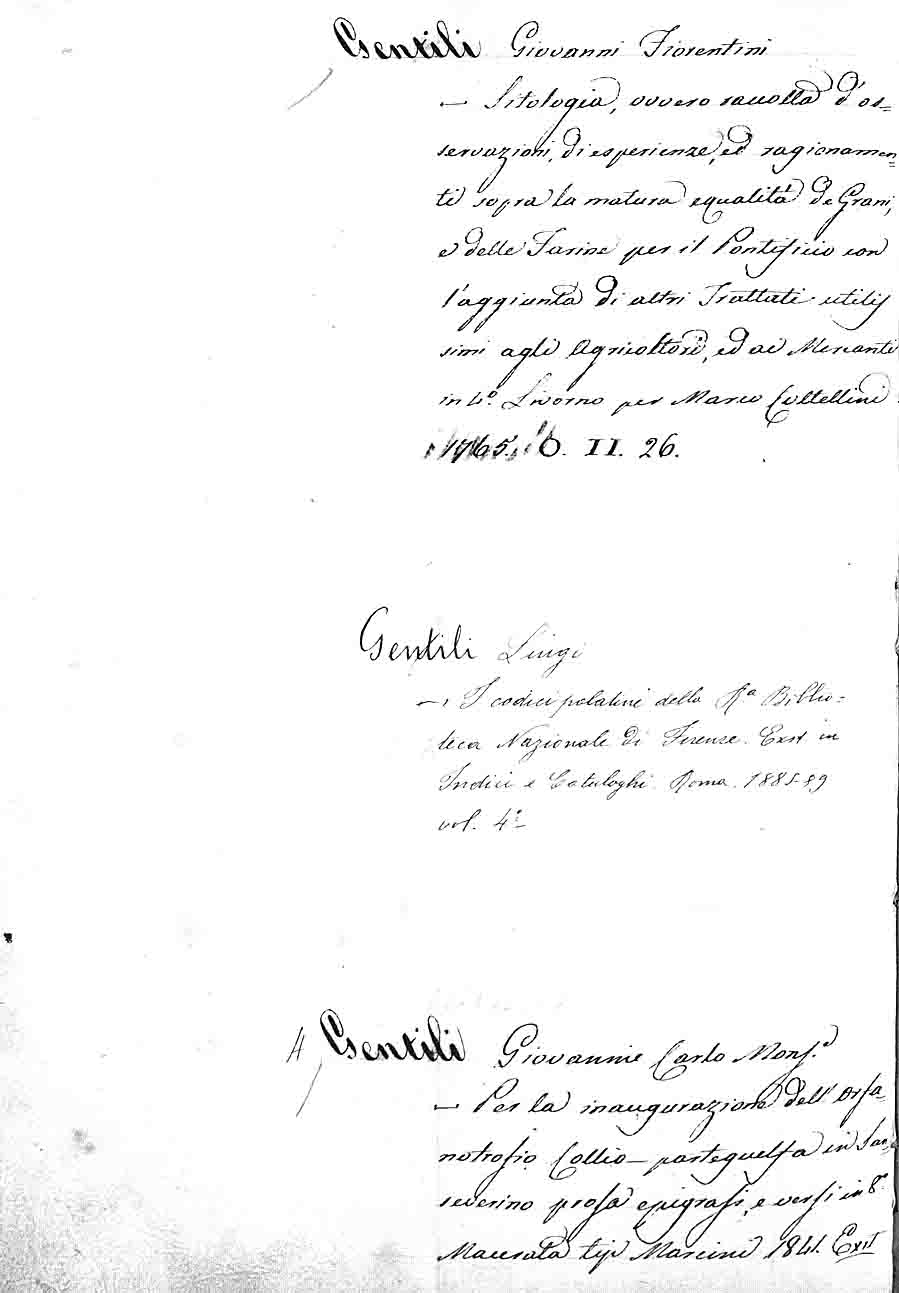 Gentili Giovanni Fiorentini
— Sitologia, ovvero raccolta d'os=
servazioni, di esperienze, ed ragionamen=
ti sopra la matura equalità de Grani,
e delle Farine per il Pontificio con
l'aggiunta di altri Trattati utilis
simi agli Agricoltori, ed ai Mercanti
in 4.º Livorno per Marco Coltellini
1765. O. II. 26.
Gentili Luigi
— I codici palatini della R.ª Biblio=
teca Nazionale di Firenze. Exst in
Indici e Cataloghi. Roma. 1885-89
vol. 4º
A Gentili Giovannie Carlo Mons.
— Per la inaugurazione dell' Orfa=
notrofio Collio — parteguelfa in San
severino prosa epigrafi, e versi in 8º
Macerata tip Mancini 1841. Exit